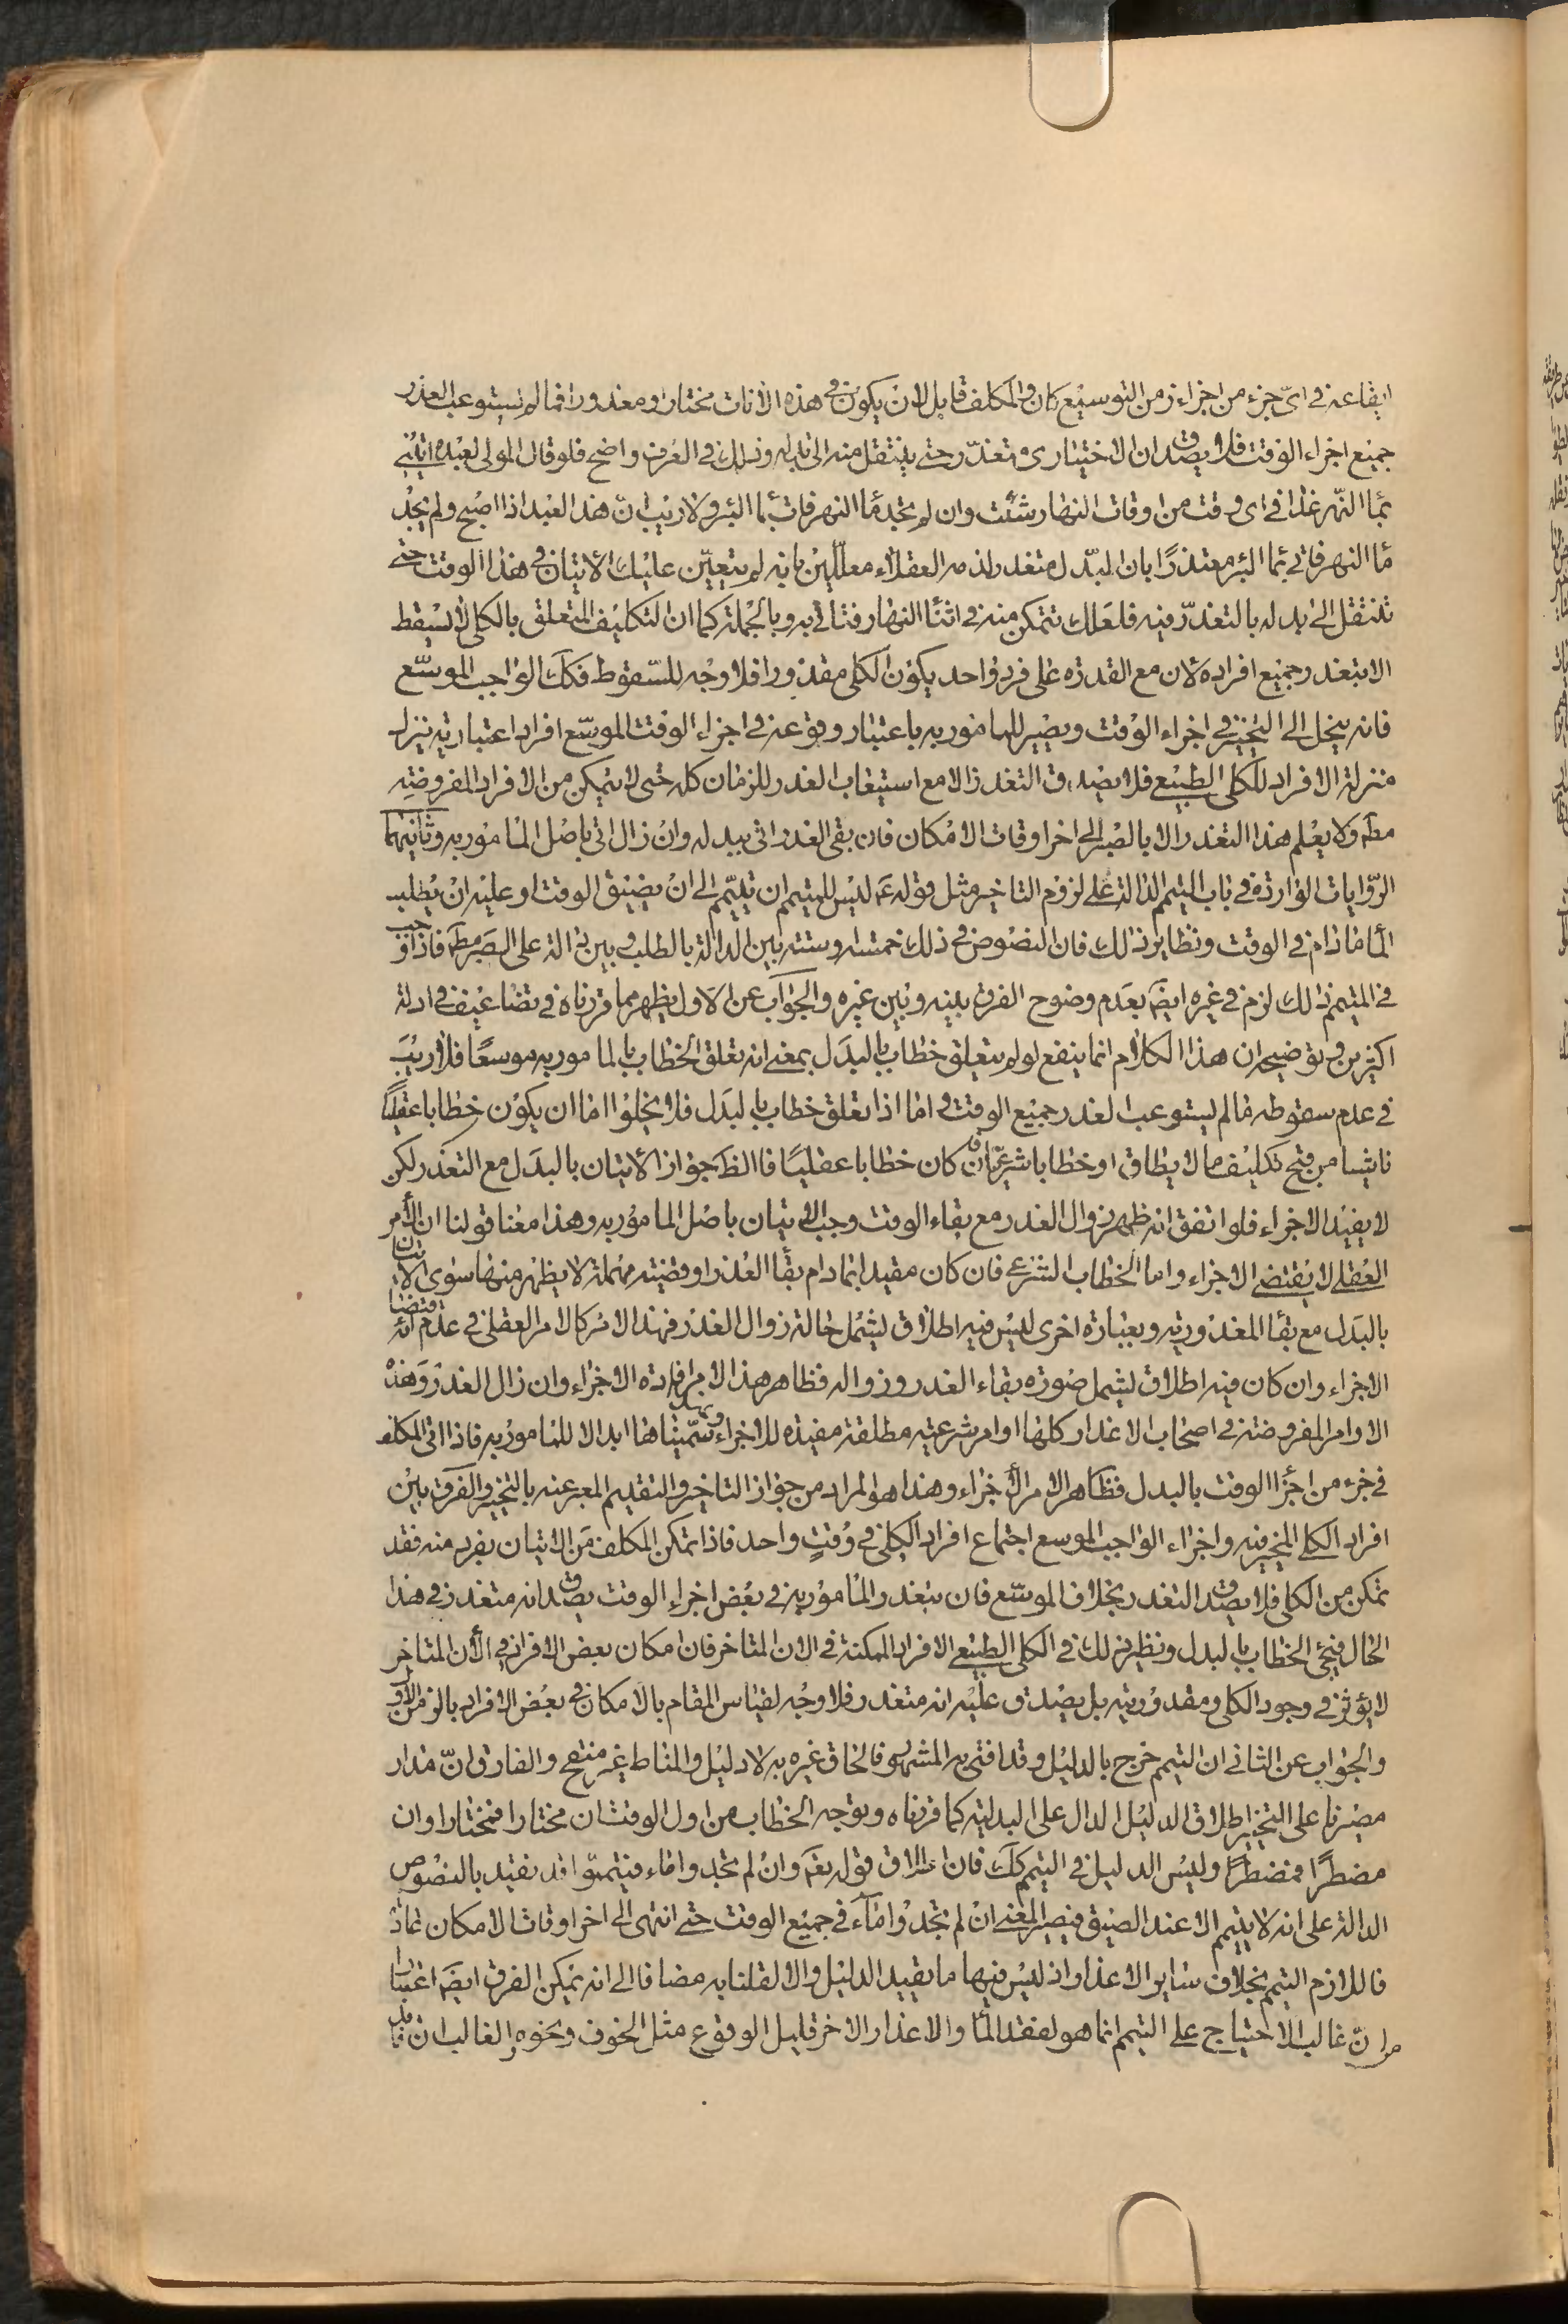 ايقاعه في اىّ جزء من اجزاء زمن التوسيع كان والمكلف قابل لان يكون في هذه الانات مختارا ومعذورا فما لم يستوعب العذر
جميع اجزاء الوقت فلا يصدق ان الاختيارى متعذّر حتى ينتقل منه الى بدله وذلك في العرف واضح فلو قال المولى لعبده ايتنى
بماء النهر غدا في اى وقت من اوقات النهار شئت وان لم تجد ماء النهر فات بماء البئر ولا ريب انّ هذا العبد اذا اصبح ولم يجد
ماء النهر فاتى بماء البئر معتذرًا بان المبدّل متعذر لذمه العقلاء معلّلين بانه لم يتعيّن عليك الاتيان في هذا الوقت حتى
تنتقل الى بدله بالتعذّر فيه فلعلك تتمكن منه في اثناء النهار فتاتى به وبالجملة كما ان التكليف المتعلق بالكلى لا يسقط
الا بتعذر جميع افراده لان مع القدرة على فرد واحد يكون الكلى مقدورا فلا وجه للسّقوط فكك الواجب الموسّع
فانه ينحل الى التخيير في اجزاء الوقت ويصير للمامور به باعتبار وقوعه في اجزاء الوقت الموسّع افراد اعتبارية ينزل
منزلة الافراد للكلى الطبيعى فلا يصدق التعذر الا مع استيعاب العذر للزمان كله حتى لا يتمكن من الافراد المفروضه
مطه ولا يعلم هذا التعذر الا بالصبر الى اخر اوقات الامكان فان بقى العذر اتى ببدله وان زال اتى باصل المامور به وثانيهما
الرّوايات الواردة في باب التيمم الدالة على لزوم التاخير مثل قوله ع ليس للمتيمم ان تيمّم الى ان يضيق الوقت او عليه ان يطلب
الماء مادام في الوقت ونظاير ذلك فان النصوص في ذلك خمسة وستة بين الدالة بالطلب وبين دالة على الصبر مطه فاذا وجب
في التيمم ذلك لزم في غيره ايضَ بعدم وضوح الفرق بينه وبين غيره والجواب عن الاول يظهر مما قررناه في تضاعيف ادلة
اكثرين وتوضيحه ان هذا الكلام انما ينفع لو لم يتعلق خطاب بالبدل بمعنى انه تعلق الخطاب بالمامور به موسعًا فلا ريبَ
في عدم سقوطه مالم يستوعب العذر جميع الوقت واما اذا تعلق خطاب بالبدل فلا يخلوا اما ان يكون خطابا عقليًا
ناشيا من قبح تكليف ما لا يطاق او خطابا شرعيّا فان كان خطابا عقليًا فالظَ جواز الاتيان بالبدل مع التعذر لكن
لا يفيد الاجزاء فلو اتفق انه ظهر زوال العذر مع بقاء الوقت وجب الاتيان باصل المامور به وهذا معنا قولنا ان الأمر
العقلى لا يقتضى الاجزاء واما الخطاب الشرعى فان كان مقيدا بمادام بقاء العذر او قضيته مهملة لا يظهر منها سوى الاتيان
بالبدل مع بقاء المعذورية وبعبارة اخرى ليس فيه اطلاق ليشمل حالة زوال العذر فهذا الامر كالامر العقلى في عدم اقتضائه
الاجزاء وان كان فيه اطلاق ليشمل صورة بقاء العذر وزواله فظاهر هذا الامر افادة الاجزاء وان زال العذر وهذه
الاوامر المفروضة في اصحاب الاعذار كلها اوامر شرعية مطلقة مفيدة للاجزاء وسمّيناها ابدالا للمامور به فاذا اتى المكلف
في جزء من اجزاء الوقت بالبدل فظاهر الامر الاجزاء وهذا هو المراد من جواز التاخير والتقديم المعبر عنه بالتخيير والفرق بين
افراد الكلى المخير فيه واجزاء الواجب الموسع اجتماع افراد الكلى في وقتٍ واحد فاذا تمكن المكلف من الاتيان بفرد منه فقد
تمكن من الكلى فلا يصدق التعذر بخلاف الموسّع فان بتعذر المامور به في بعض اجزاء الوقت يصدق انه متعذر في هذا
الحال فيجئ الخطاب بالبدل ونظير ذلك في الكلى الطبيعى الافراد الممكنة في الان المتاخر فان امكان بعض الافراد في الآن المتاخر
لا يؤثر في وجود الكلى ومقدورية بل يصدق عليه انه متعذر فلا وجه لقياس المقام بالامكان في بعض الافراد بالزمن الاول
والجواب عن الثانى ان التيمم خرج بالدليل وقد افتى به المشهور فالحاق غيره به لا دليل والمناط غير منقح والفارق انّ مدار
مصيرنا على التخيير اطلاق الدليل الدال على البدلية كما قررناه وتوجه الخطاب من اول الوقت ان مختارا فمختارا وان
مضطرًا فمضطرًا وليس الدليل في التيمم ككَ فان اطلاق قوله تعَ وان لم تجدوا ماء فتيمموا قد تقيد بالنصوص
الدالة على انه لا يتيمم الا عند الضيق فيصير المعنى ان لم تجدوا ماءً في جميع الوقت حتى انتهى الى اخر اوقات الامكان عادة
فاللازم التيمم بخلاف ساير الاعذار اذ ليس فيها ما يقيد الدليل والا لقلنا به مضافا الى انه يمكن الفرق ايضَ اعتبارا
من انّ غالب الاحتياج على التيمم انما هو لفقد الماء والاعذار الاخر قليل الوقوع مثل الخوف ونحوه والغالب ان